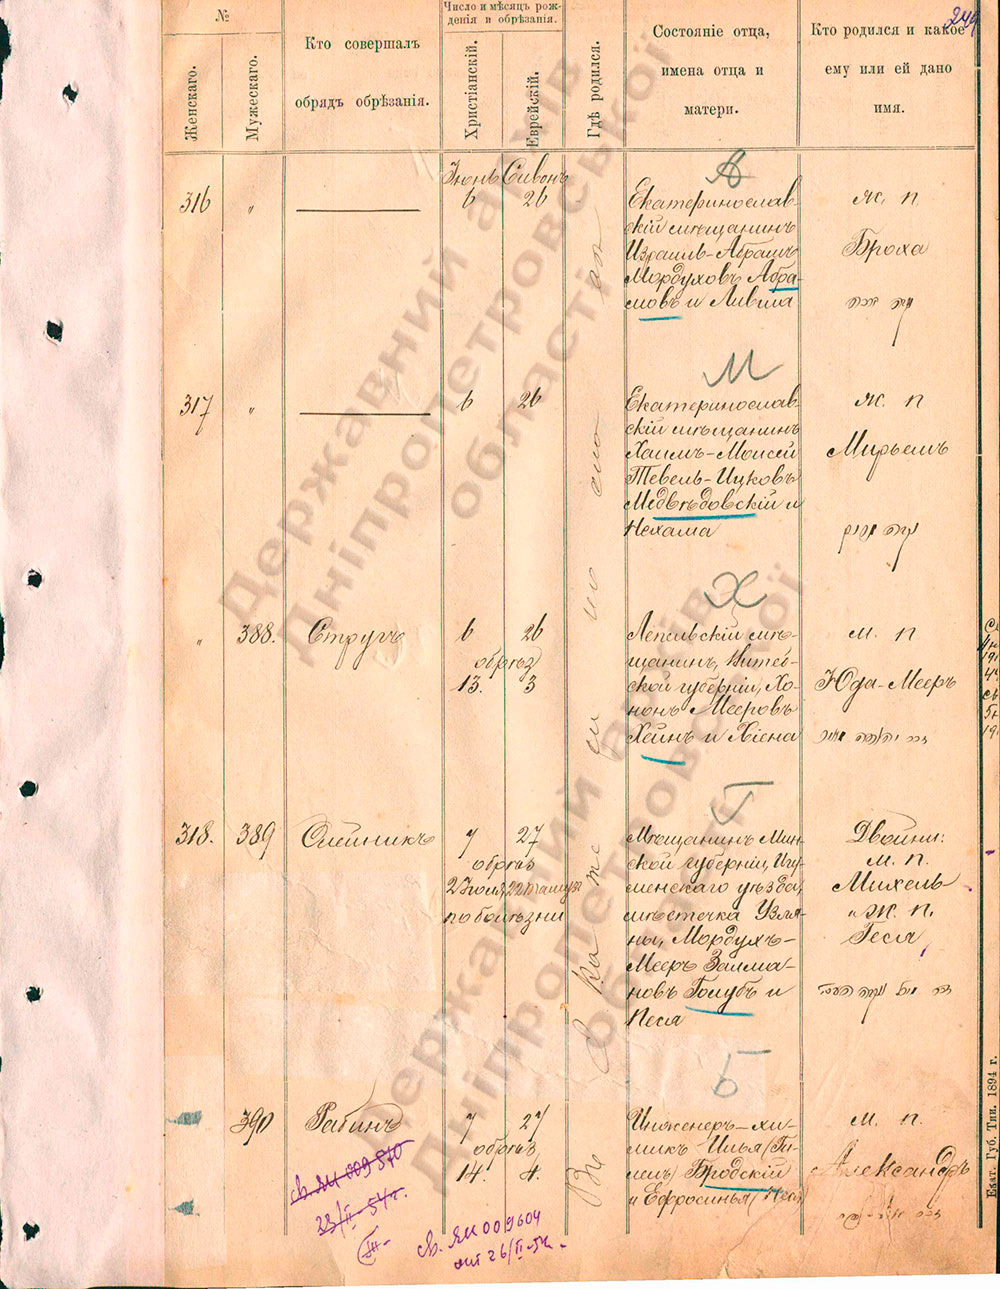 249
№
Женскаго.
Мужескаго.
Кто совершалъ
обрядъ обрѣзанія.
Число и мѣсяцъ рож-
денія и обрѣзанія.
Христіанскій.
Еврейскій.
Гдѣ родился.
Состояніе отца,
имена отца и
матери.
Кто родился и какое
ему или ей дано
имя.
Іюнь Сивонъ
316 "
6 26
А
Екатеринослав-
скій мѣщанинъ
Израиль-Абрамъ
Мордуховъ Абра-
мовъ и Ливша
ж. п.
Броха
317 "
6 26
М
Екатеринослав-
скій мѣщанинъ
Хаимъ-Моисей
Тевель-Ицковъ
Медвѣдовскій и
Нехама
ж. п
Мирьемъ
" 388.
Стругъ
6 26
обрѣз
13. 3
Х
Лепельскій мѣ-
щанин, Витеб-
ской губерніи, Хо-
нонъ Мееровъ
Хейнъ и Хіена
м. п
Юда-Мееръ
318. 389
Олейникъ
7 27
обрѣз
2 Іюля, 22 Тамуза
по болѣзни
Г
Мѣщанинъ Мин-
ской губерніи, Игу-
менскаго уѣзда,
мѣстечка Узля-
ны, Мордухъ-
Мееръ Залма-
новъ Голубъ и
Песя
Двойни:
м. п.
Михель
и Ж. п.
Геся
390
Рабинъ
7 27
обрѣз
14. 4.
Б
Инженеръ-хи-
микъ Илья (Ги-
лель) Бродскій
и Ефросинья
м. п.
Александръ
св. ЯИ 009570
23/II-54г.
св. ЯИ 009604
от 26/II-54г.
Екат. Губ. Тип. 1894 г.
Державний архів
Дніпропетровської
області
Державний архів
Дніпропетровської
області